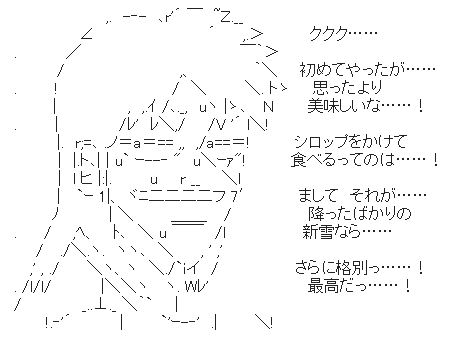 ククク……
初めてやったが……
思ったより
美味しいな……！
シロップをかけて
食べるってのは……！
まして　それが……
降ったばかりの
新雪なら……
さらに格別っ……！
最高だっ……！